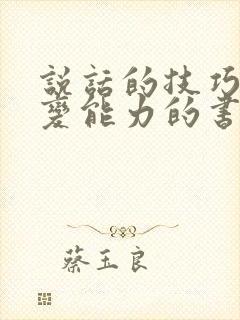 說話的技巧
變能力的書
蔡玉良